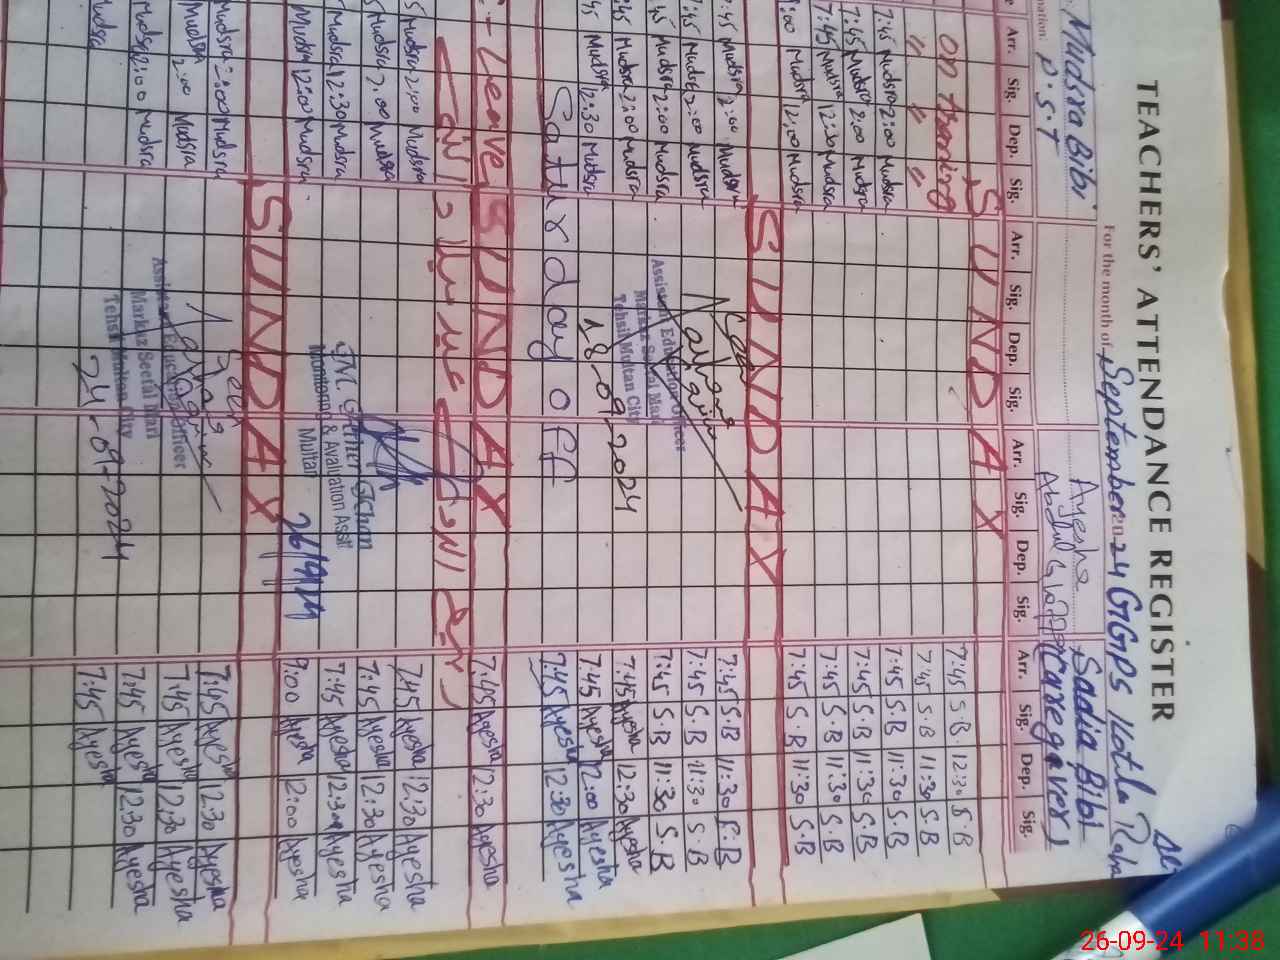 TEACHERS' ATTENDANCE REGISTER
For the month of September 2024 GGPS Kotla
Mudsra Bibi
P.S.T
Ayesha
Sadia Bibi
(Caregaver)
Arr. Sig. Dep. Sig. Arr. Sig. Dep. Sig. Arr. Sig. Dep. Sig. Arr. Sig. Dep. Sig.
SUNDAY
On 7:45 S.B 12:30 S.B
" " " 7:45 S.B 11:30 S.B
7:45 Mudsra 2:00 Mudsra 7:45 S.B 11:30 S.B
7:45 Mudsra 2:00 Mudsra 7:45 S.B 11:30 S.B
7:45 Mudsra 12:30 Mudsra 7:45 S.B 11:30 S.B
Mudsra 12:00 Mudsra 7:45 S.B 11:30 S.B
SUNDAY
7:45 Mudsra 2:00 Mudsra 7:45 S.B 11:30 S.B
7:45 Mudsra 2:00 Mudsra 7:45 S.B 11:30 S.B
7:45 Mudsra 2:00 Mudsra 7:45 S.B 11:30 S.B
7:45 Mudsra 2:00 Mudsra 7:45 Ayesha 12:30 Ayesha
Mudsra 12:30 Mudsra 7:45 Ayesha 12:00 Ayesha
Assistant Education Officer
Tehsil Multan City
18-09-2024
Saturday off 7:45 Ayesha 12:30 Ayesha
Leave SUNDAY 7:45 Ayesha 12:30 Ayesha
Mudsra 2:00 Mudsra 7:45 Ayesha 12:30 Ayesha
Mudsra 2:00 Mudsra 7:45 Ayesha 12:30 Ayesha
Mudsra 12:30 Mudsra 7:45 Ayesha 12:30 Ayesha
Mudsra 12:00 Mudsra 9:00 Ayesha 12:00 Ayesha
Monitoring & Avaluation Asstt
Multan
26/9/24
SUNDAY
Mudsra 2:00 Mudsra 7:45 Ayesha 12:30 Ayesha
Mudsra 2:00 Mudsra 7:45 Ayesha 12:30 Ayesha
Mudsra 2:00 Mudsra 7:45 Ayesha 12:30 Ayesha
Mudsra 7:45 Ayesha
Seen
Assistant Education Officer
Markaz Seetal Mari
Tehsil Multan City
24-09-2024
26-09-24 11:38